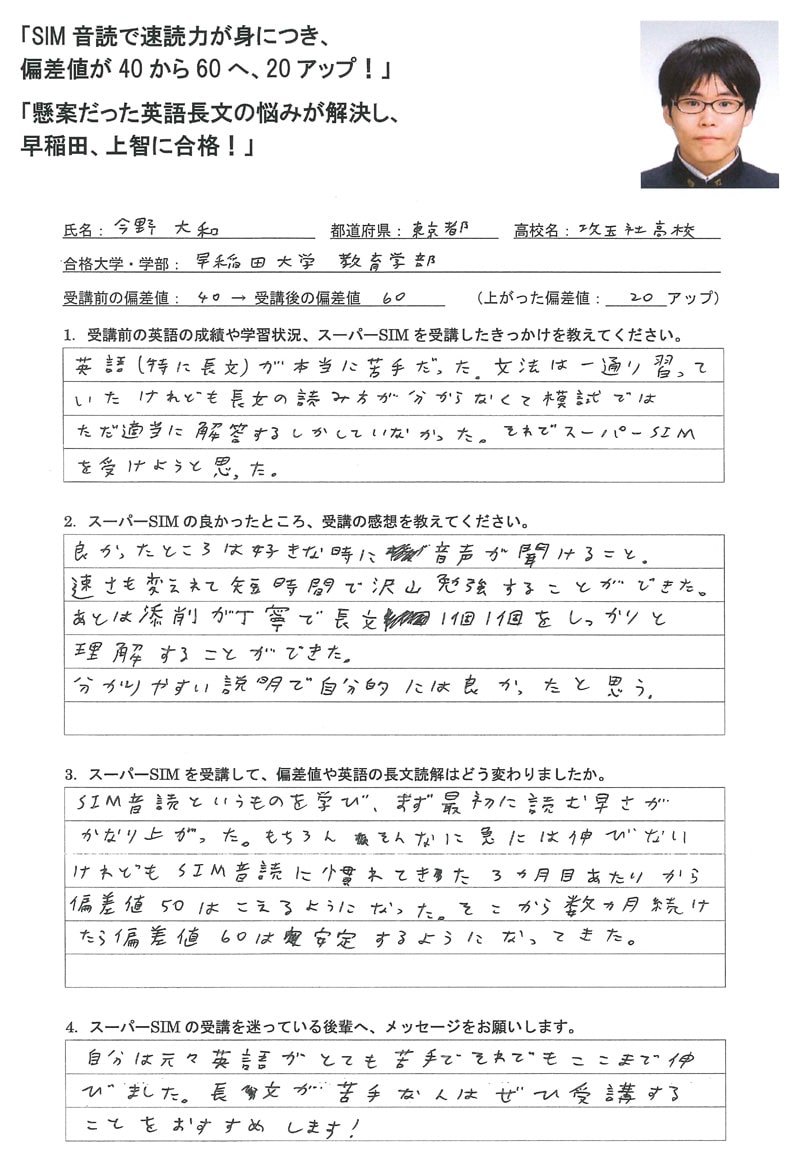 「SIM 音読で速読力が身につき、
偏差値が 40 から 60 へ、20 アップ！」
「懸案だった英語長文の悩みが解決し、
早稲田、上智に合格！」
氏名： 今野 大和 都道府県： 東京都 高校名： 攻玉社高校
合格大学・学部： 早稲田大学 教育学部
受講前の偏差値： 40 → 受講後の偏差値 60 （上がった偏差値： 20 アップ）
1. 受講前の英語の成績や学習状況、スーパーSIM を受講したきっかけを教えてください。
英語(特に長文)が本当に苦手だった。文法は一通り習って
いたけれども長文の読み方が分からなくて模試では
ただ適当に解答するしかしていなかった。それでスーパーSIM
を受けようと思った。
2. スーパーSIM の良かったところ、受講の感想を教えてください。
良かったところは好きな時に音声が聞けること。
速さも変えれて短時間で沢山勉強することができた。
あとは添削が丁寧で長文1個1個をしっかりと
理解することができた。
分かりやすい説明で自分的には良かったと思う。
3. スーパーSIM を受講して、偏差値や英語の長文読解はどう変わりましたか。
SIM音読というものを学び、まず最初に読む早さが
かなり上がった。もちろんそんなに急には伸びない
けれどもSIM音読に慣れてきた3ヵ月目あたりから
偏差値50はこえるようになった。そこから数ヵ月続け
たら偏差値60は安定するようになってきた。
4. スーパーSIM の受講を迷っている後輩へ、メッセージをお願いします。
自分は元々英語がとても苦手でそれでもここまで伸
びました。長文が苦手な人はぜひ受講する
ことをおすすめします!